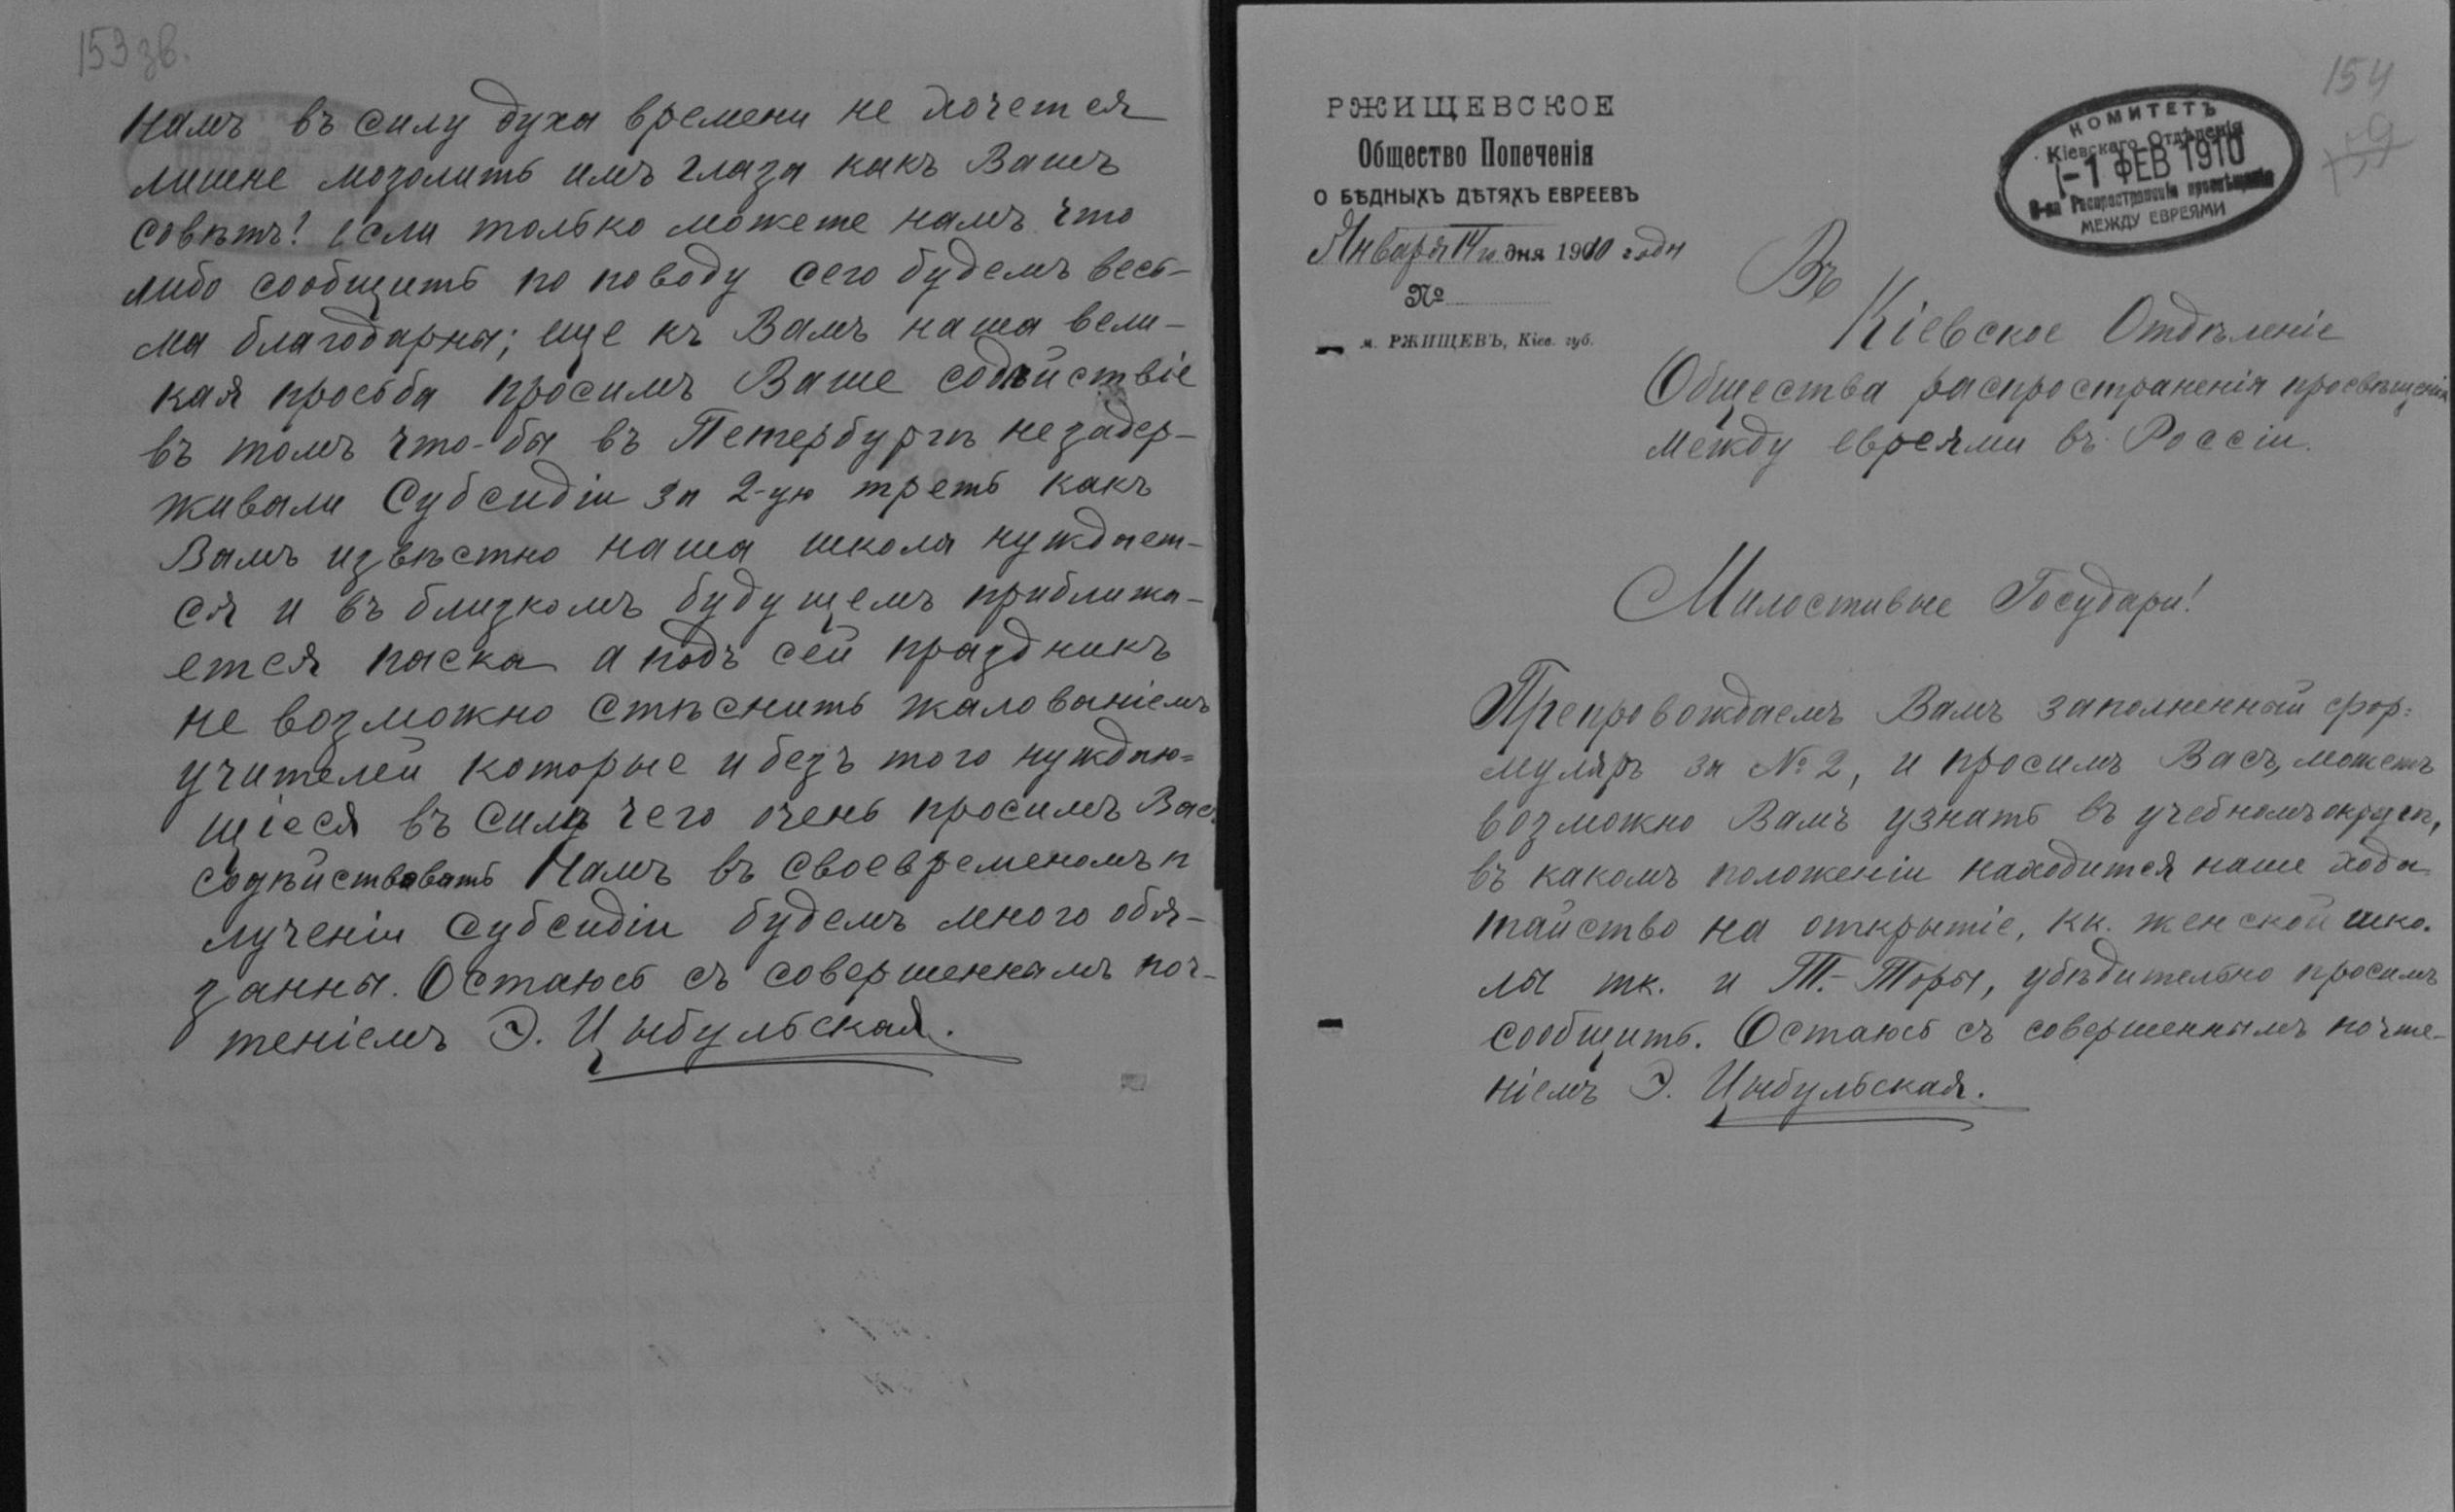 153 зв.
Намъ въ силу духа времени не хочется
лишне мозолить имъ глаза какъ Вашъ
совѣтъ! если только можете намъ что
либо сообщить по поводу сего будемъ весь-
ма благодарны; еще къ Вамъ наша вели-
кая просьба просимъ Ваше содѣйствіе
въ томъ что-бы въ Петербургѣ не задер-
живали Субсидіи за 2-ую треть какъ
Вамъ извѣстно наша школа нуждает-
ся и въ близкомъ будущемъ приближа-
ется паска а подъ сей праздникъ
не возможно стѣснить жалованіемъ
учителей которые и безъ того нуждаю=
щіеся въ силу чего очень просимъ Вас
содѣйствовать Намъ въ своевременомъ п
лученіи Субсидіи будемъ много обя-
занны. Остаюсь съ совершеннымъ поч-
теніемъ Э. Цыбульская.
154
РЖИЩЕВСКОЕ
Общество Попеченія
О БѢДНЫХЪ ДѢТЯХЪ ЕВРЕЕВЪ
Января 14го дня 1910 года
№
м. РЖИЩЕВЪ, Кіев. губ.
КОМИТЕТЪ
Кіевскаго Отдѣленія
-1 ФЕВ 1910
О-ва Распространенія просвѣщенія
МЕЖДУ ЕВРЕЯМИ
Въ
Кіевское Отдѣленіе
Общества распространенія просвѣщенія
между евреями въ Россіи.
Милостивые Государи!
Препровождаемъ Вамъ заполненный фор=
муляръ за № 2, и просимъ Васъ, можетъ
возможно Вамъ узнать въ учебномъ округѣ,
въ какомъ положеніи находится наше хода
тайство на открытіе, кк. женской шко.
лы тк. и Т.-Торы, убѣдительно просимъ
сообщить. Остаюсь съ совершеннымъ почте-
ніемъ Э. Цыбульская.